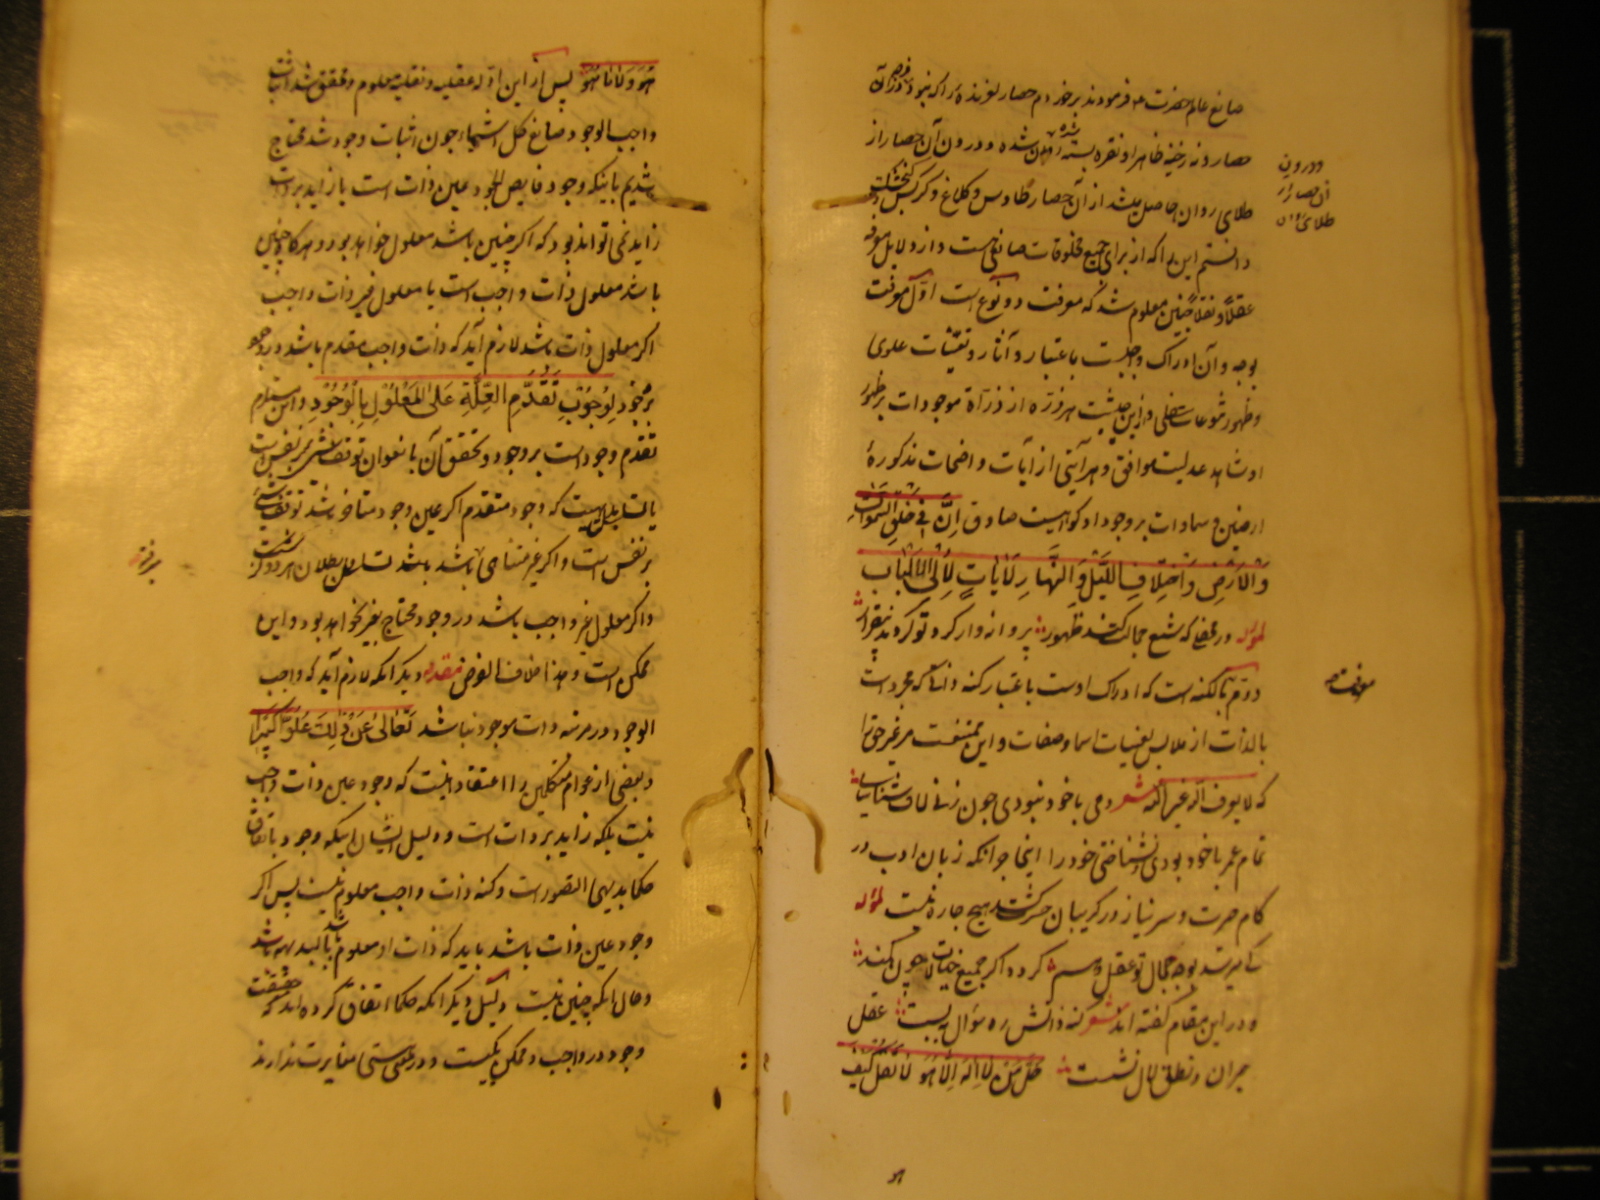 صانع عالم حضرت فرمودند برخوردم حصار لغزنده را که نبود
حصار و نه رخنه ظاهر او نقره بسته شده و درون آن حصار از
طلای روان حاصل میشد از آن حصار طاوس و کلاغ و کرکس
دانستم این را که از برای جمیع مخلوقات صانعی هست و از دلایل
عقلا و نقلا چنین معلوم شد که معرفت دو نوع است اول معرفت
بوجه و آن ادراک واجبست باعتبار و آثار و تعینات علوی
و ظهور تنوعات سفلی و ازین حیثیت هر ذره از ذرات موجودات بر ظهور
او شاهد عدلیست موافق و هر آیتی از آیات واضحات مذکوره
ارضین و سماوات بر وجود او گواهیست صادق اِنَّ فی خَلقِ السَّمواتِ
وَالاَرْضِ وَاخْتِلافِ اللَّیْلِ وَالنَّهارِ لَایاتٍ لِاُولِی الْاَلْبابِ
لمؤلفه در محفلی که شمع جمالت کند ظهور پروانه وار گرد تو گردند
دوم بالکنه است که ادراک اوست باعتبار کنه ذات که مجرد است
بالذات از ملابس تعینات اسما و صفات و این ممتنعست مر غیر حق را
که لا یعرف الله غیر الله شعر دمی با خود نبودی چون زنی لاف شناسایی
تمام عمر با خود بودی نشناختی خود را اینجا جز آنکه زبان ادب در
کام حیرت و سر نیاز در گریبان حسرت کشد هیچ چاره نیست لمؤلفه
کی میرسد بوجه جمال تو عقل و وهم کرده اگر جمیع خیالات چون کمند
و در این مقام گفته اند شعر کنه ذاتش ره سؤال ببست عقل
حیران و نطق لال نشست قل من لا اله الا هو لا تقل کیف
هو
ودرون
آن حصار از
طلای روان
معرفت
هُوَ وَلا ما هُوَ پس از این ادله عقلیه و نقلیه معلوم و محقق شد اثبات
واجب الوجود صانع کل اشیاء چون اثبات وجود شد محتاج
شدیم باینکه وجود فایض الجود عین ذات است یا زاید بر ذات
زاید نمی تواند بود که اگر چنین باشد معلول خواهد بود و هرگاه چنین
باشد معلول ذات واجب است یا معلول غیر ذات واجب
اگر معلول ذات باشد لازم آید که ذات واجب مقدم باشد در وجود
بر وجود لِوُجُوبِ تَقَدُّمِ العِلَّةِ عَلَی المَعْلُولِ بِالْوُجُودِ و این مستلزم
تقدم وجود است بر وجود و تحقق آن یا بعنوان توقف شئ بر نفس است
یا تسلسل است که وجود متقدم اگر عین وجود متاخر باشد توقف شئ
بر نفس است و اگر غیر متناهی باشد باشد تسلسل بطلان هر دو
و اگر معلول غیر واجب باشد در وجود محتاج بغیر خواهد بود و این
ممکن است و هذا خلاف الفرض مقدمه دیگر آنکه لازم آید که واجب
الوجود در مرتبه ذات موجود نباشد تَعالی عَنْ ذلِكَ عُلُوّاً كَبیراً
و بعضی از عوام متکلمین را اعتقاد اینست که وجود عین ذات واجب
نیست بلکه زاید بر ذات است و دلیل ایشان اینکه وجود باتفاق
حکما بدیهی التصور است و کنه ذات واجب معلوم نیست پس اگر
وجود عین ذات باشد باید که ذات او معلوم باشد بالبدیهه
و حال آنکه چنین نیست دلیل دیگر آنکه حکما اتفاق کرده اند که حقیقت
وجود در واجب و ممکن یکیست و در معنی هستی مغایرت ندارند